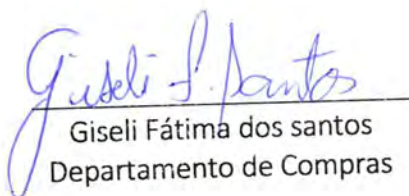 Giseli F. Santos
Giseli Fátima dos santos
Departamento de Compras